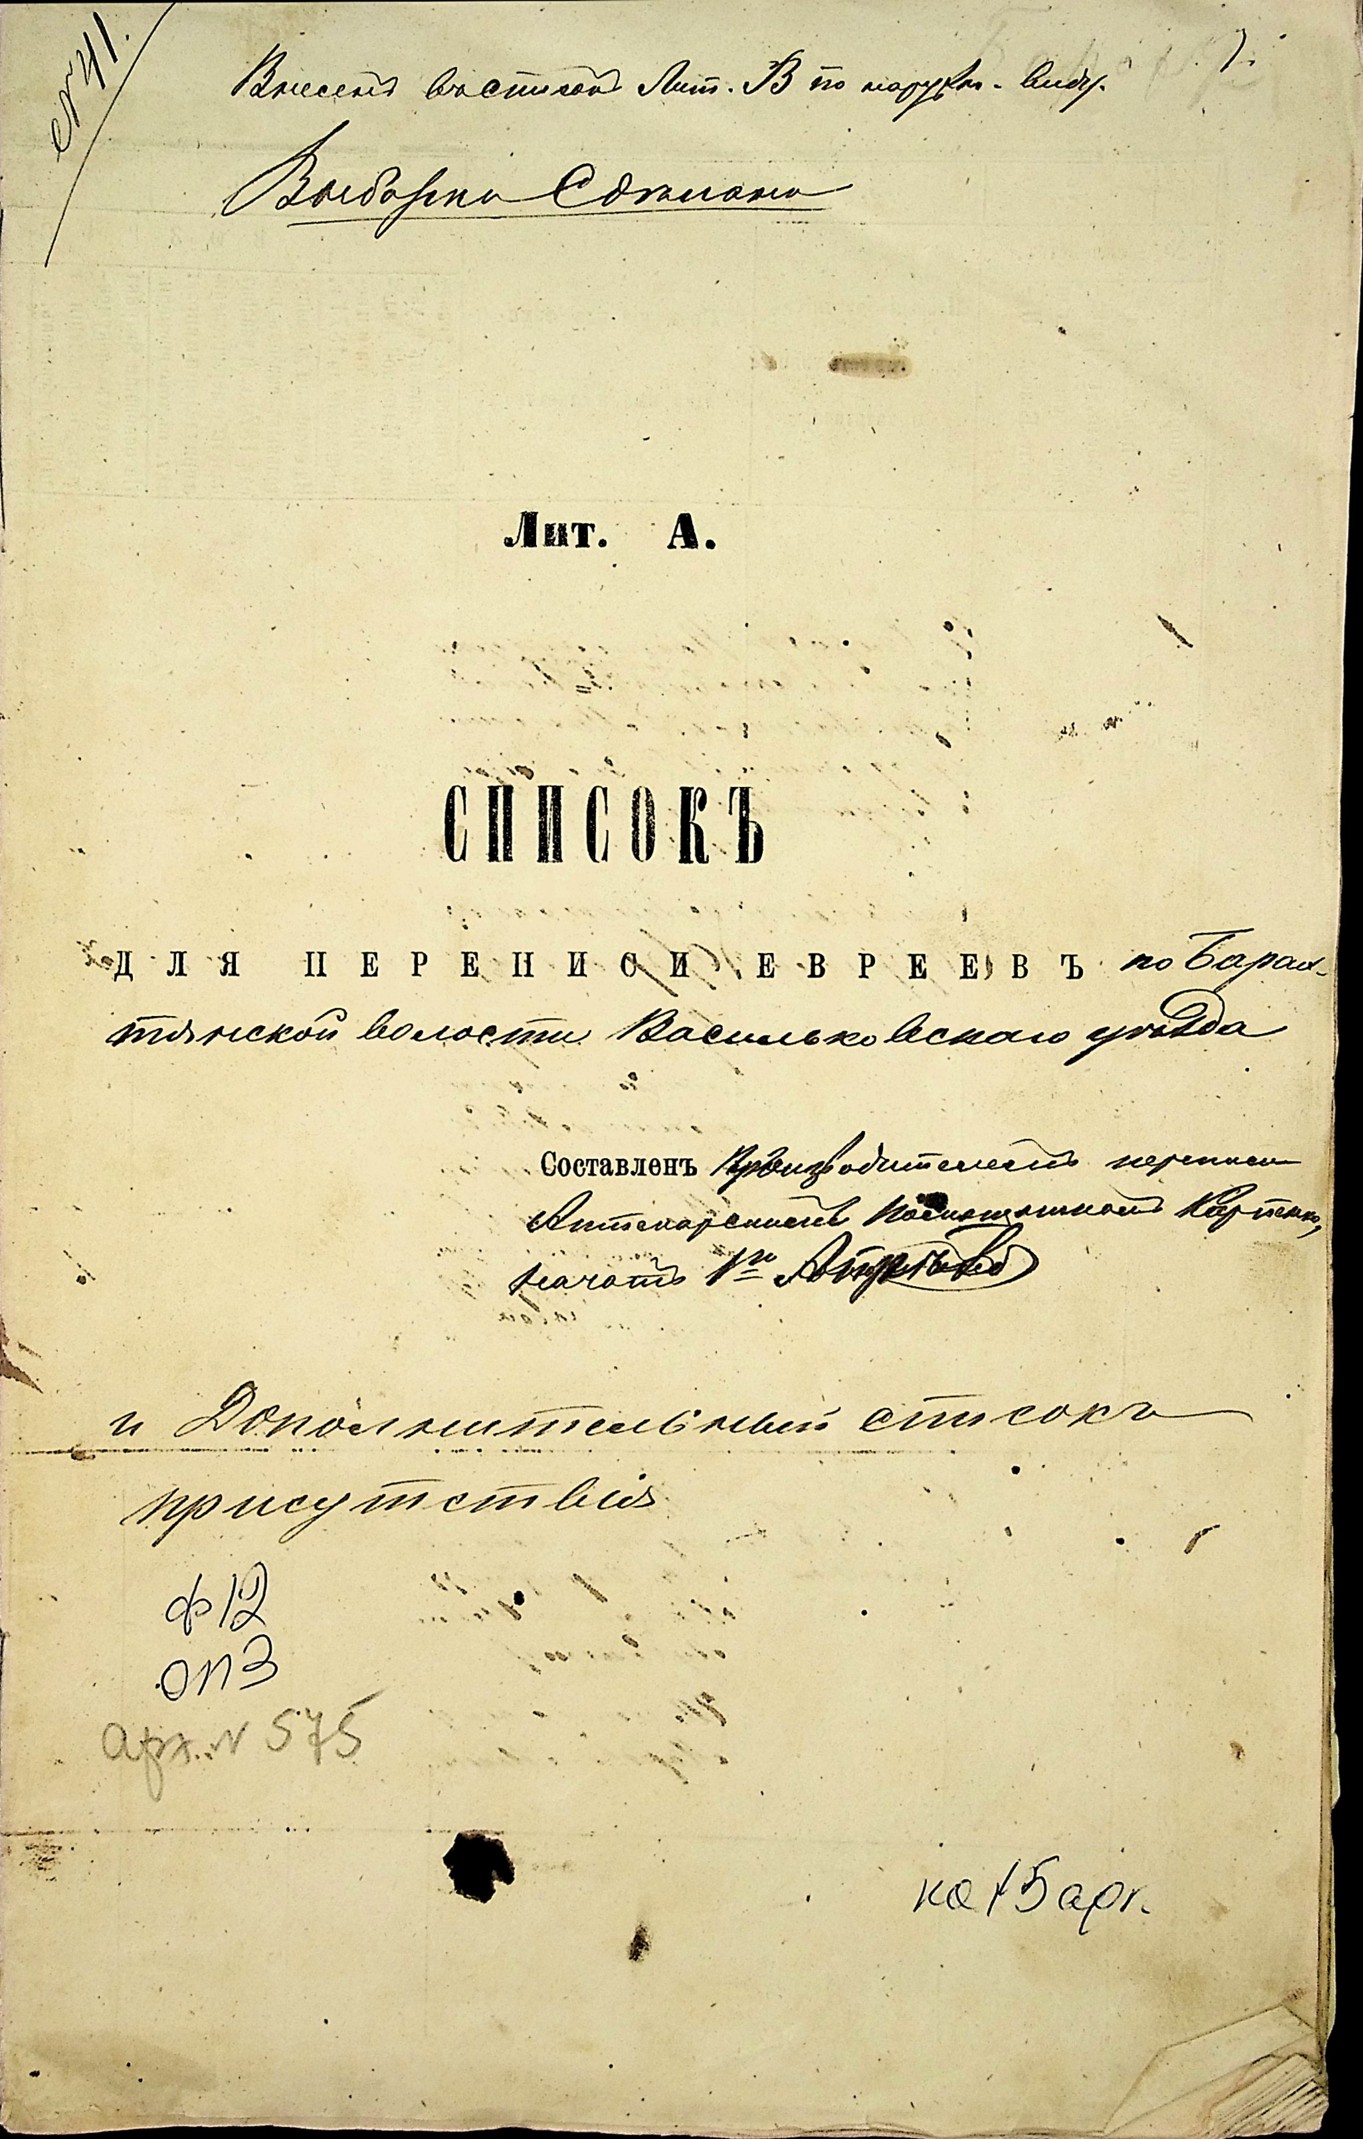 № 41.
Внесенъ въ списокъ Лит. В по наружн. виду.
Выборка Сдѣлана
Лит. А.
СПИСОКЪ
ДЛЯ ПЕРЕПИСИ ЕВРЕЕВЪ по Барах-
тянской волости Васильковскаго уѣзда
Составленъ Производителемъ переписи
Аптекарскимъ Помощникомъ
Начатъ 1го
и Дополнительный списокъ
присутствія
ф 12
оп 3
арх. № 575
на 15 арк.